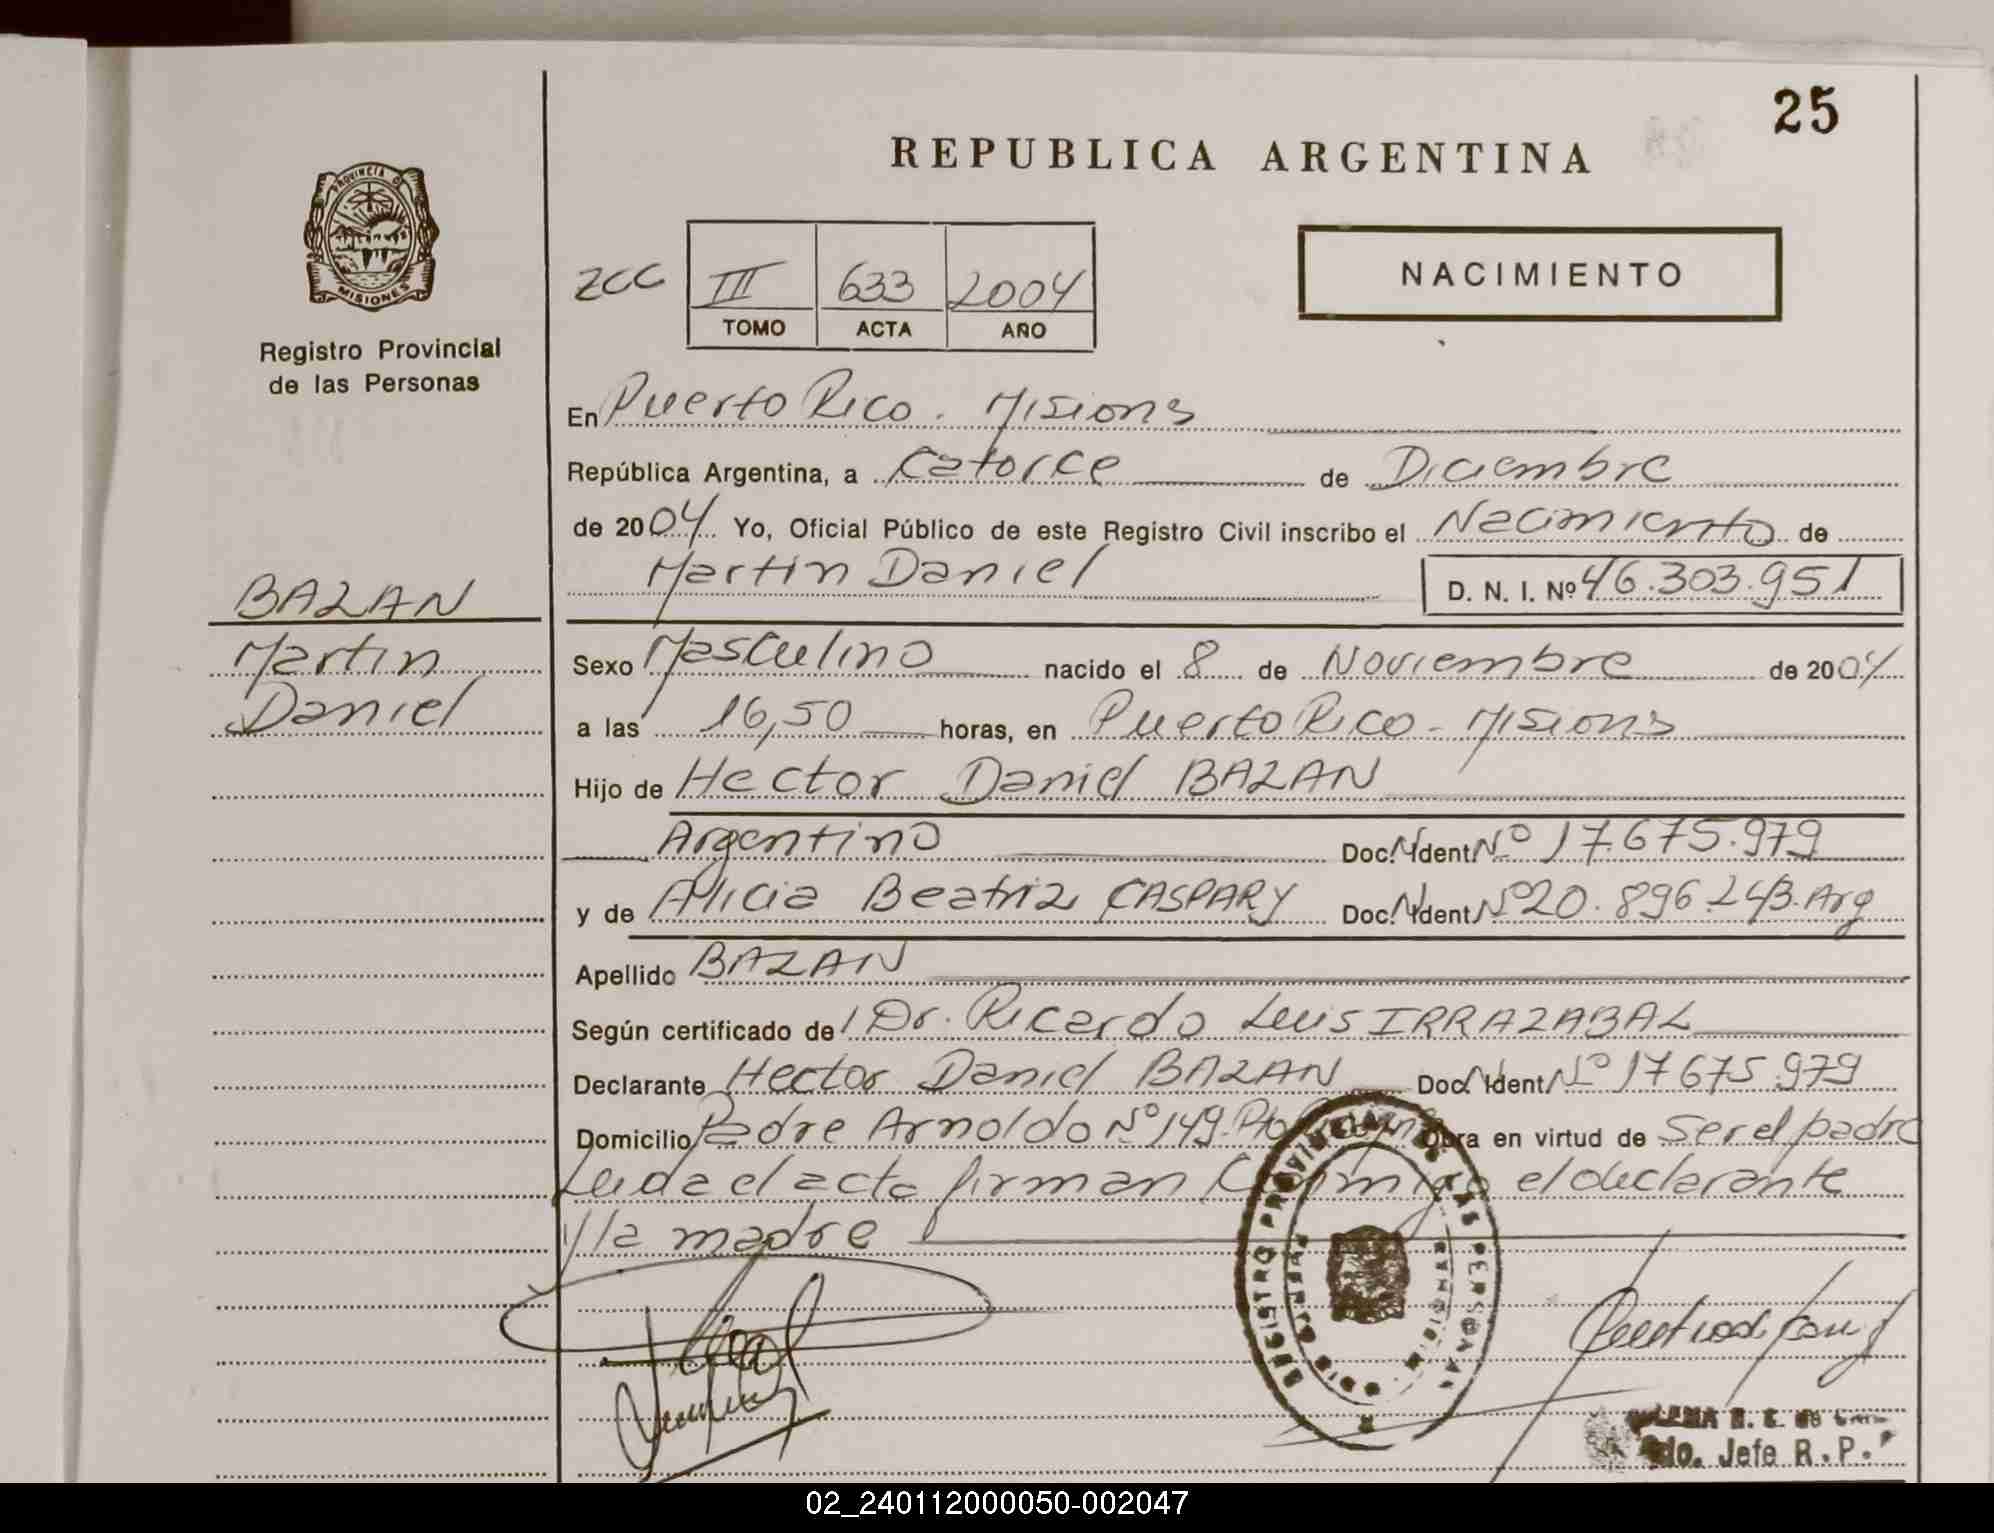 25
REPUBLICA ARGENTINA
PROVINCIA DE
MISIONES
Registro Provincial
de las Personas
ZCC III 633 2004
TOMO ACTA AÑO
NACIMIENTO
En Puerto Rico. Misions
República Argentina, a Catorce de Diciembre
de 2004 Yo, Oficial Público de este Registro Civil inscribo el Nacimiento de
Martin Daniel D. N. I. Nº 46.303.951
BAZAN
Martin
Daniel
Sexo Masculino nacido el 8 de Noviembre de 2004
a las 16,50 horas, en Puerto Rico - Misions
Hijo de Hector Daniel BAZAN
Argentino Doc. Ident. Nº 17.675.979
y de Alicia Beatriz CASPARY Doc. Ident. Nº 20.896.243. Arg
Apellido BAZAN
Según certificado de Dr. Ricardo Luis IRRAZABAL
Declarante Hector Daniel BAZAN Doc. Ident. Nº 17675.979
Domicilio Padre Arnoldo Nº 149. Pto Obra en virtud de Ser el padre
Leida el acta firman el declarante
y la madre
REGISTRO PROVINCIAL DE LAS PERSONAS
Jefe R. P.
02_240112000050-002047